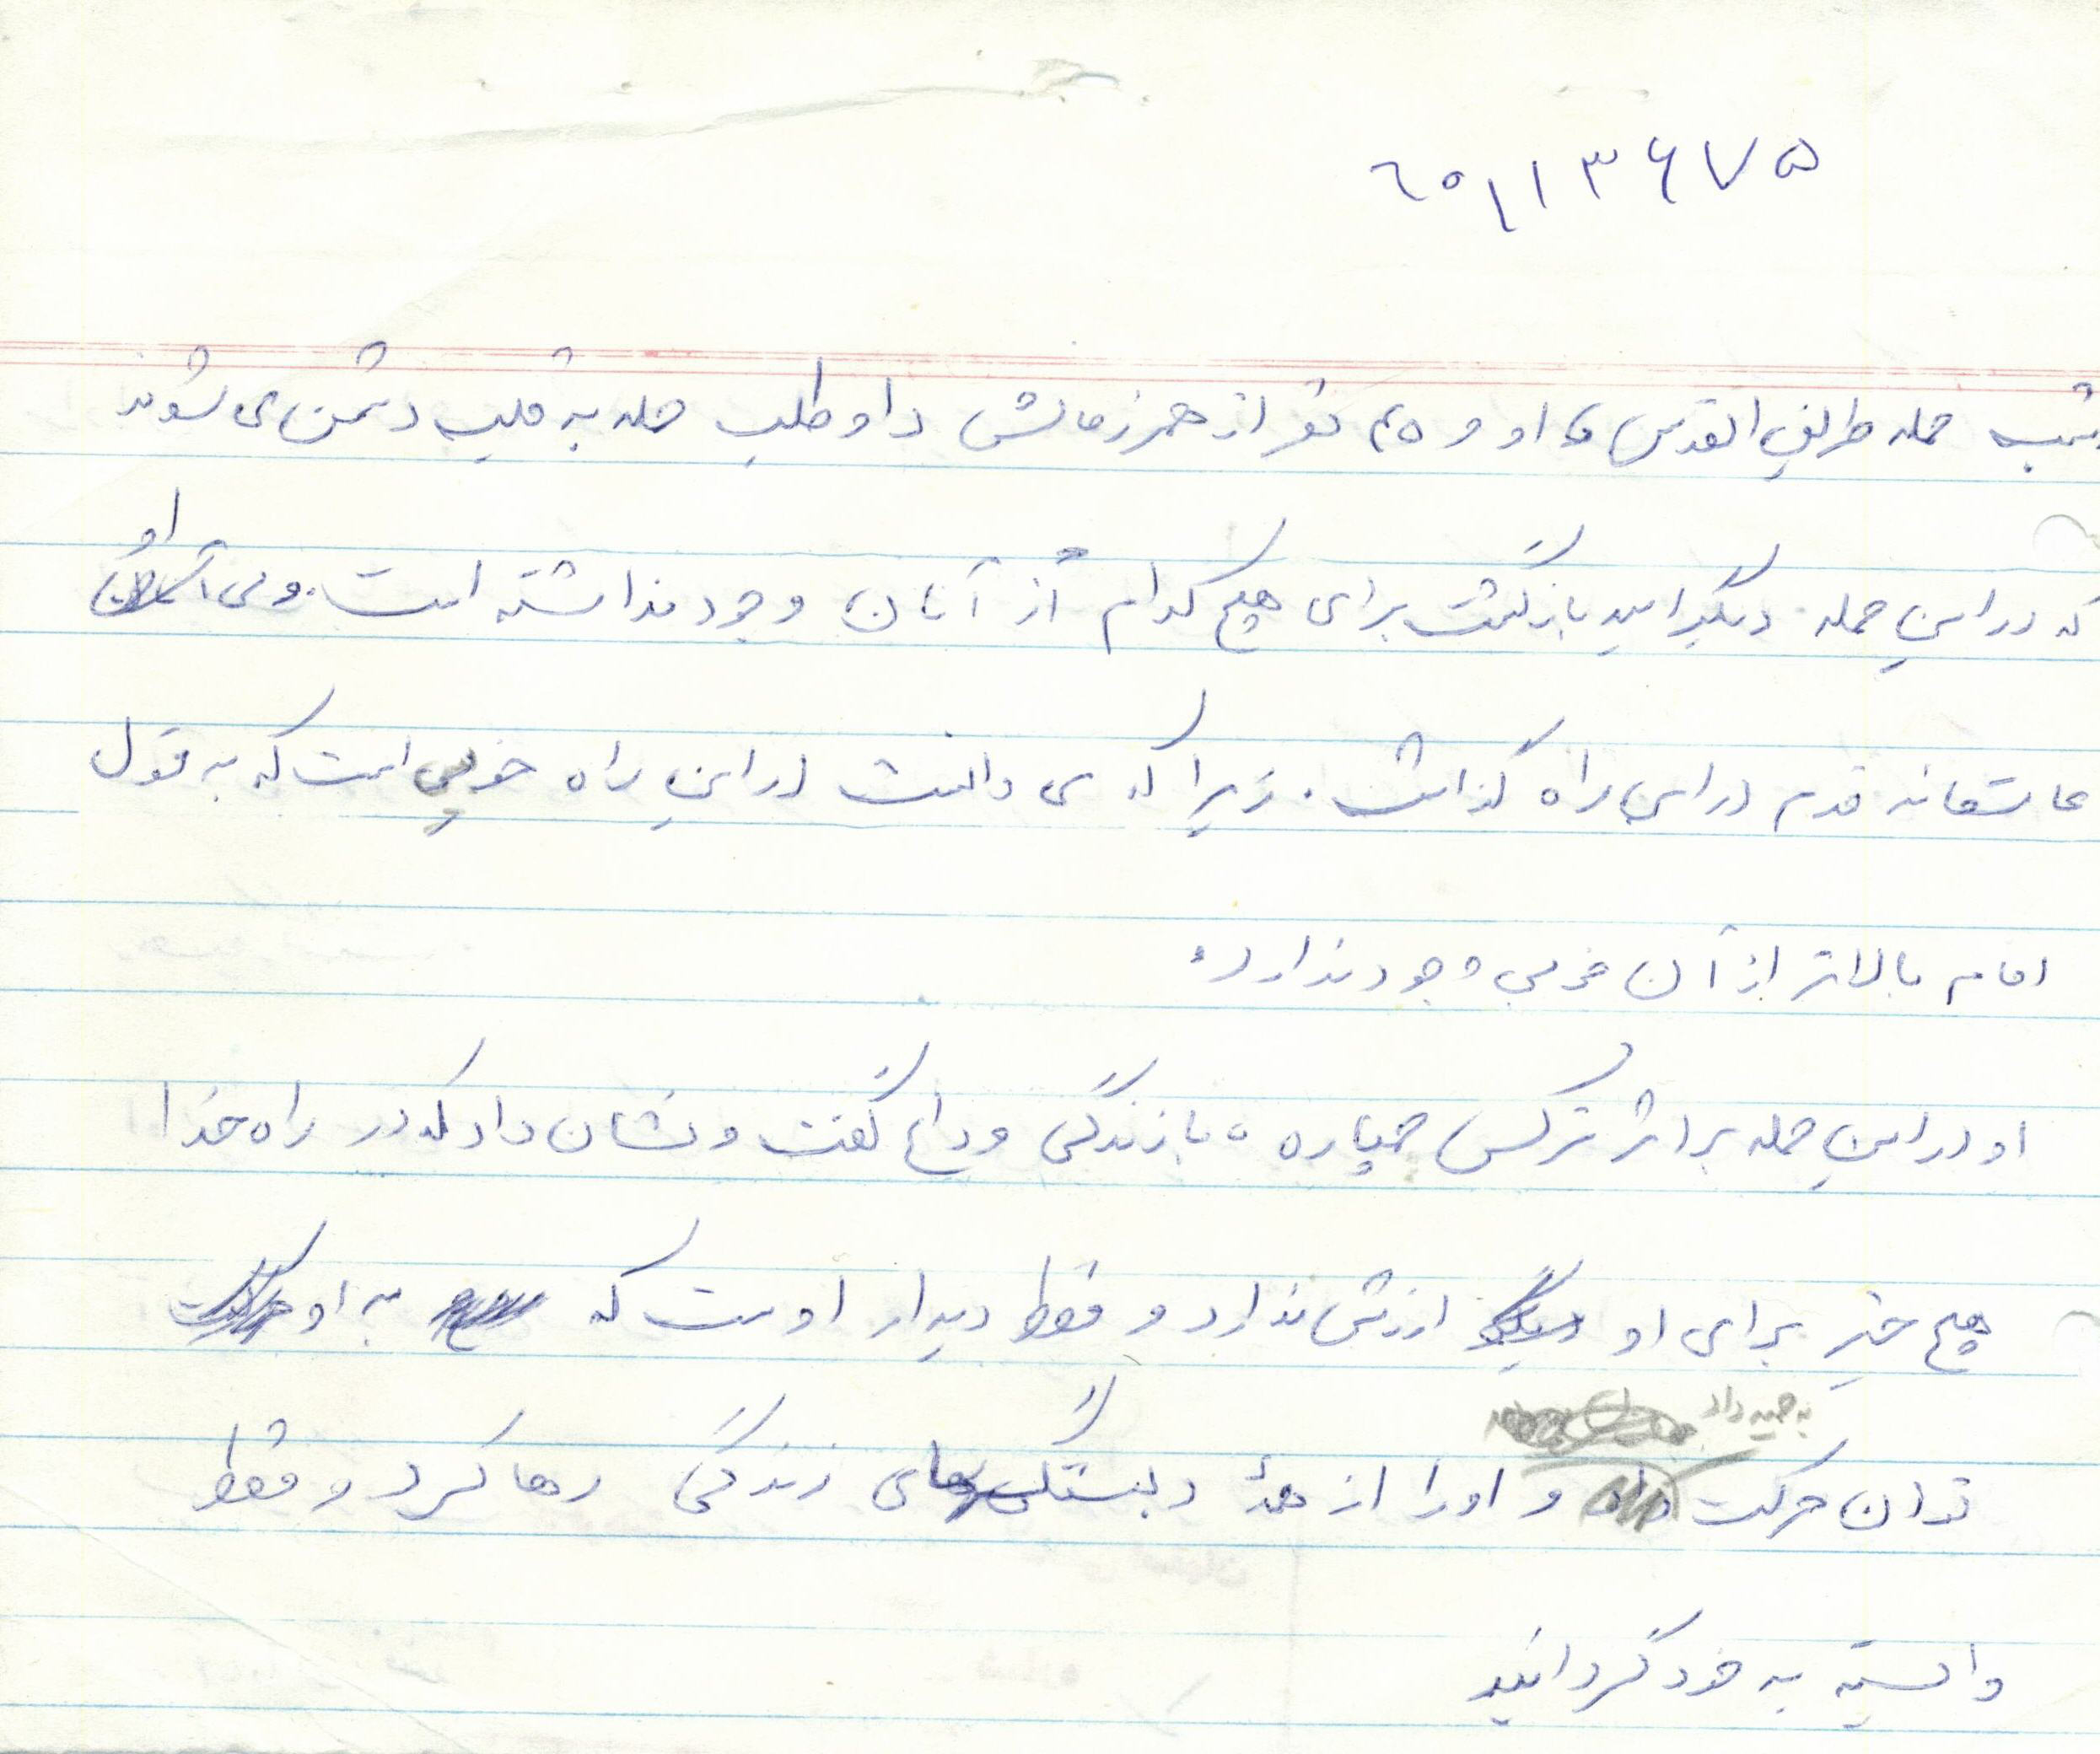 ۶۰۱۱۳۶۷۵
شب حمله طریق القدس، او و ۲۵ نفر از همرزمانش داوطلب حمله به قلب دشمن می شوند
که در این حمله دیگر امید بازگشت برای هیچ کدام از آنان وجود نداشته است. ولی او
عاشقانه قدم در این راه گذاشت. زیرا که می دانست در این راه خوبی است که به قول
امام بالاتر از آن خوبی وجود ندارد.
او در این حمله بر اثر ترکش خمپاره، با زندگی وداع گفت و نشان داد که در راه خدا
هیچ چیز برای او ارزش ندارد و فقط دیدار اوست که به او
به حمید داد
توان حرکت و او را از همهٔ دلبستگی های زندگی رها کرد و فقط
وابسته به خود گردانید